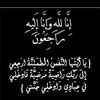 إِنَّا لِلَّهِ وَإِنَّا إِلَيْهِ
رَاجِعُونَ
يَا أَيَّتُهَا النَّفْسُ الْمُطْمَئِنَّةُ ارْجِعِي
إِلَى رَبِّكِ رَاضِيَةً مَرْضِيَّةً فَادْخُلِي
فِي عِبَادِي وَادْخُلِي جَنَّتِي